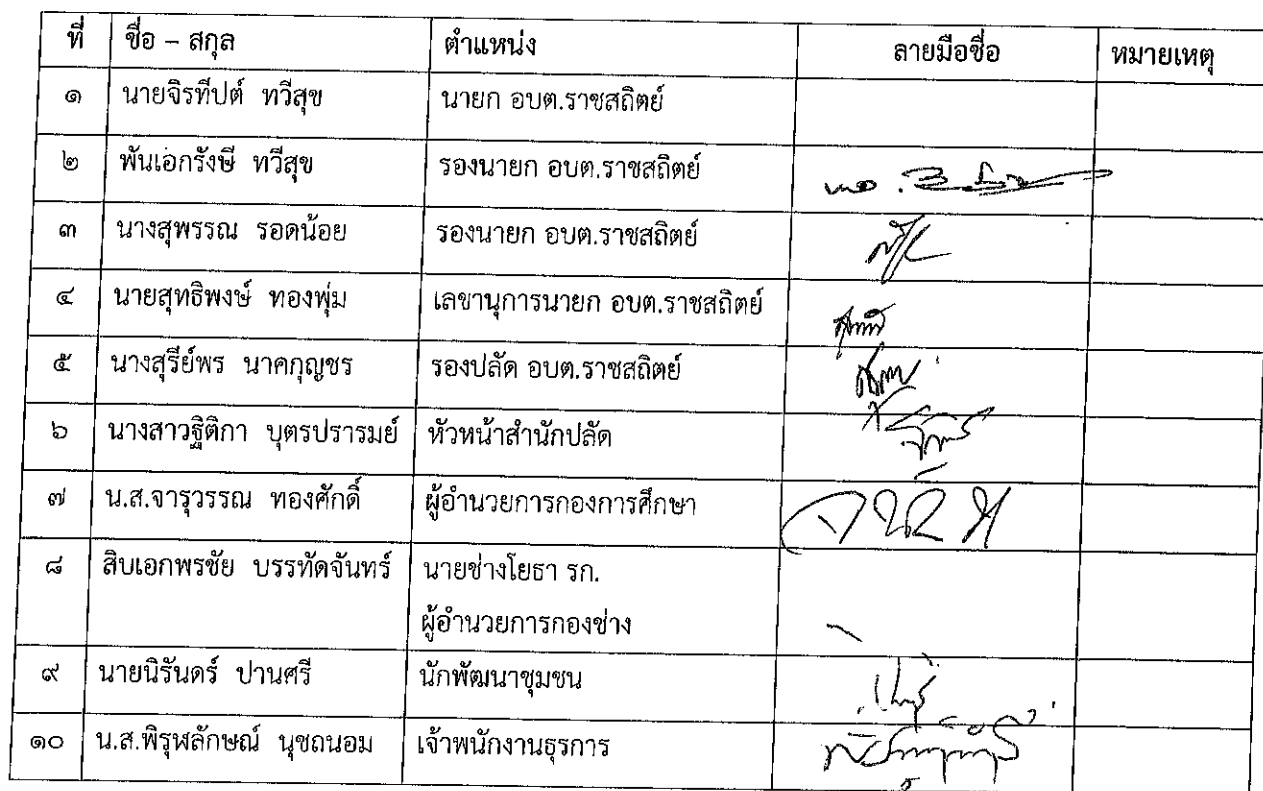 ที่ ชื่อ – สกุล ตำแหน่ง ลายมือชื่อ หมายเหตุ
๑ นายจิรทีปต์ ทวีสุข นายก อบต.ราชสถิตย์
๒ พันเอกรังษี ทวีสุข รองนายก อบต.ราชสถิตย์
๓ นางสุพรรณ รอดน้อย รองนายก อบต.ราชสถิตย์
๔ นายสุทธิพงษ์ ทองพุ่ม เลขานุการนายก อบต.ราชสถิตย์
๕ นางสุรีย์พร นาคกุญชร รองปลัด อบต.ราชสถิตย์
๖ นางสาวฐิติกา บุตรปรารมย์ หัวหน้าสำนักปลัด
๗ น.ส.จารุวรรณ ทองศักดิ์ ผู้อำนวยการกองการศึกษา
๘ สิบเอกพรชัย บรรทัดจันทร์ นายช่างโยธา รก.
ผู้อำนวยการกองช่าง
๙ นายนิรันดร์ ปานศรี นักพัฒนาชุมชน
๑๐ น.ส.พิรุฬลักษณ์ นุชถนอม เจ้าพนักงานธุรการ